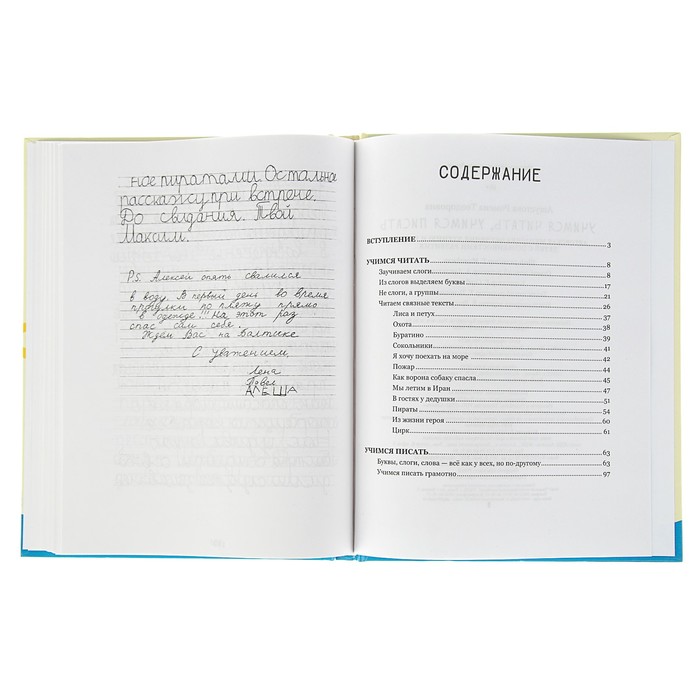 ное пиратами. Остальное
расскажу при встрече.
До свидания. Твой
Максим.
P.S. Алексей опять свалился
в воду. В первый день во время
прогулки по пляжу прямо
в одежде!!! На этот раз
спас сам себя.
Ждем Вас на Балтике
С уважением
Лена
Павел
АЛЕША
СОДЕРЖАНИЕ
ВСТУПЛЕНИЕ 3
УЧИМСЯ ЧИТАТЬ 8
Заучиваем слоги 8
Из слогов выделяем буквы 17
Не слоги, а группы 21
Читаем связные тексты 26
Лиса и петух 37
Охота 38
Буратино 39
Сокольники 41
Я хочу поехать на море 42
Пожар 44
Как ворона собаку спасла 45
Мы летим в Иран 47
В гостях у дедушки 51
Пираты 54
Из жизни героя 60
Цирк 61
УЧИМСЯ ПИСАТЬ 63
Буквы, слоги, слова — всё как у всех, но по-другому 63
Учимся писать грамотно 97